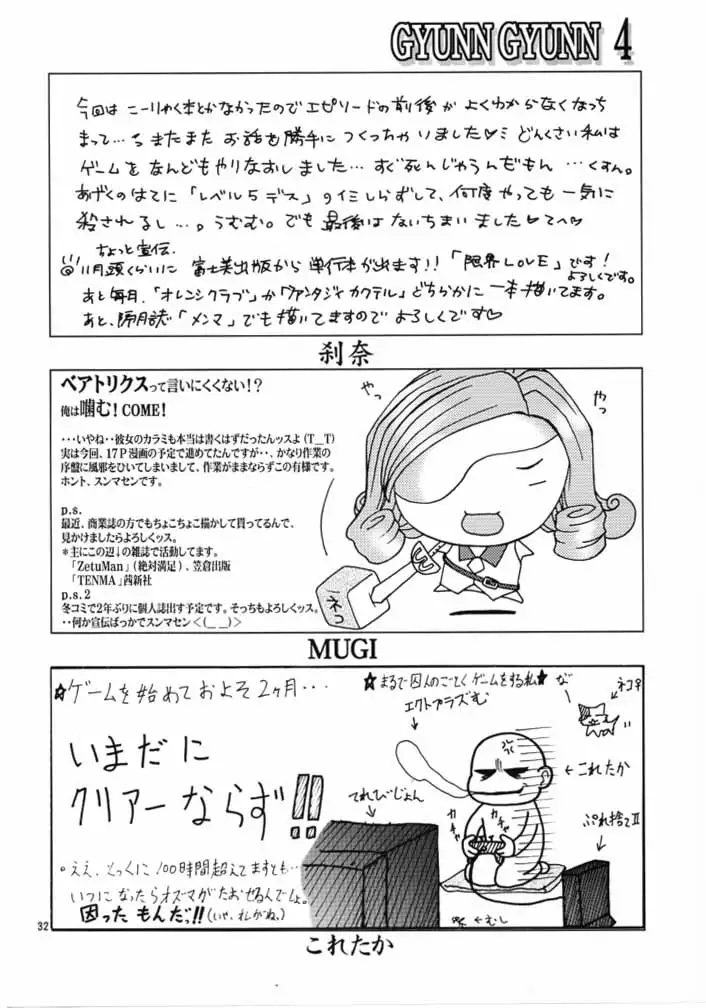 GYUNN GYUNN 4
今回は こーりゃく本とかなかったのでエピソードの前後が よくわからなくなっち
まって…
またまた お話を勝手に つくっちゃいました♡ミ どんくさい私は
ゲームをなんどもやりなおしました… すぐ死んじゃうんだもん …くすん。
あげくのはてに「レベル5デス」のイミしらずして、何度やっても一気に
殺されるし…。うむむ。でも 最後はないちまいました♡てへ♡
ちょっと宣伝、
11月頭くらいに 富士美出版から 単行本が出ます!!「限界LOVE」です!
よろしくです。
あと毎月、「オレンジクラブ」か「ファンタジィカクテル」どちらかに 一本描いてます。
あと、隔月誌「メンマ」でも描いてますので よろしくです♡
刹奈
ベアトリクスって言いにくくない!?
俺は噛む! COME!
・・・いやね・・彼女のカラミも本当は書くはずだったんッスよ(T_T)
実は今回、17P漫画の予定で進めてたんですが・・、かなり作業の
序盤に風邪をひいてしまいまして、作業がままならずこの有様です。
ホント、スンマセンです。
p.s.
最近、商業誌の方でもちょこちょこ描かして買ってるんで、
見かけましたらよろしくッス。
*主にこの辺↓の雑誌で活動してます。
「ZetuMan」(絶対満足)、笠倉出版
「TENMA」茜新社
p.s.2
冬コミで2年ぶりに個人誌出す予定です。そっちもよろしくッス。
・・何か宣伝ばっかでスンマセン<(_ _)>
やっ
やっ
ネコ
MUGI
☆ゲームを始めておよそ2ヶ月・・・
いまだに
クリアーならず!!
。ええ、とっくに100時間超えてますとも…
いつになったらオズマがたおせるんでしょ。
困ったもんだっ!!(いや、オレがね。)
★まるで囚人のごとくゲームをする私★
エクトプラズむ
な
ネコ
←これたか
てれびじょん
ガチャ
ガチャ
ぷれ捨てII
←むし
32
これたか